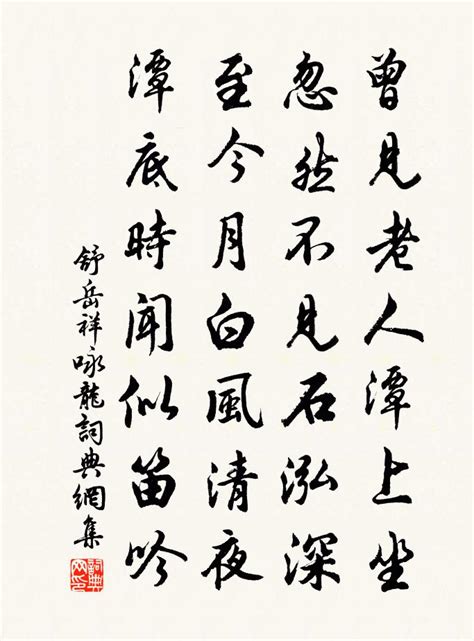 曾見老人潭上坐
忽然不見石泓深
至今月白風清夜
潭底時聞似笛吟
舒岳祥咏龍詞典網集